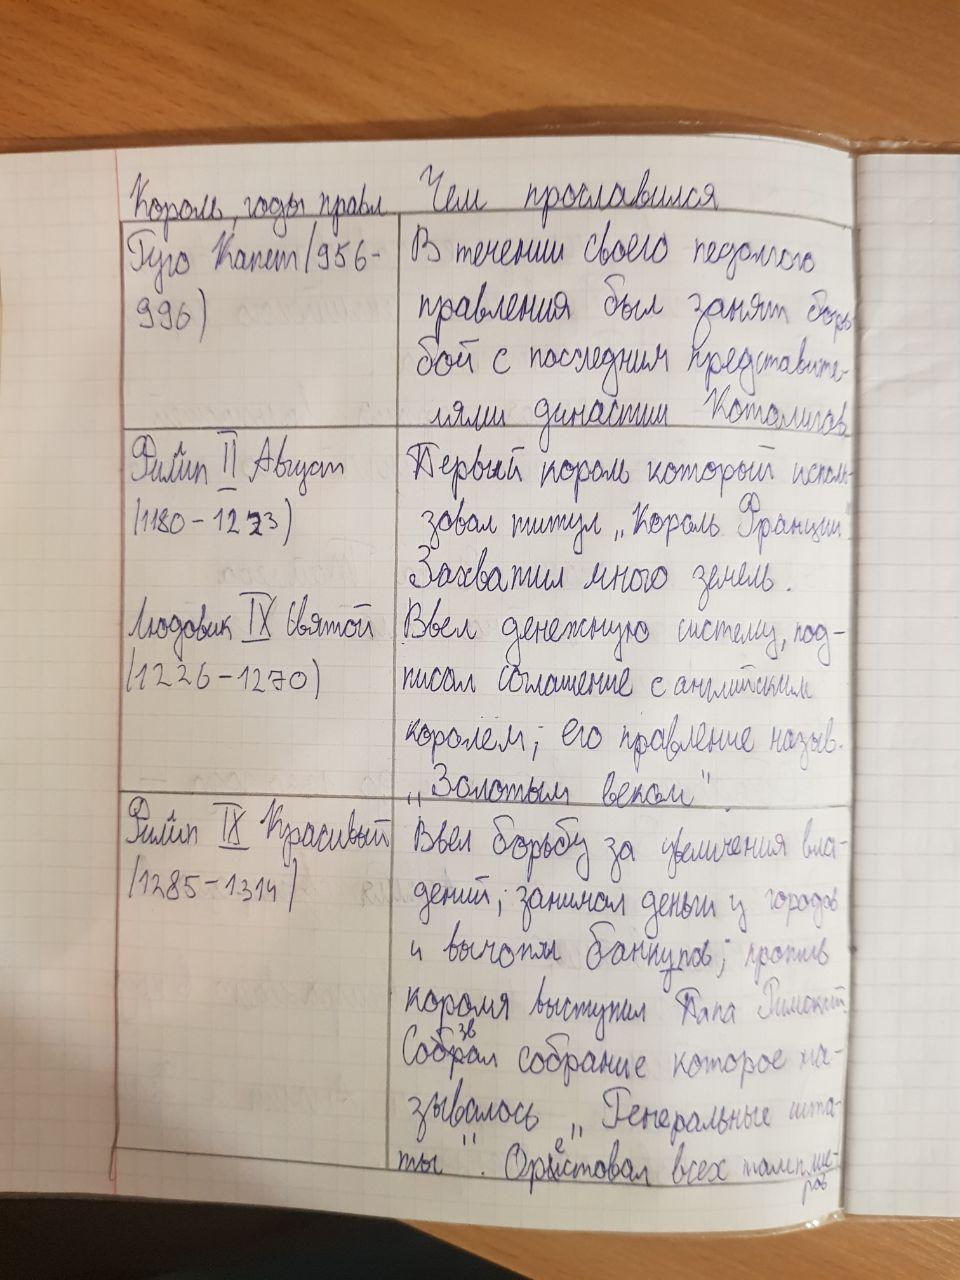 Король, годы правл Чем прославился
Гуго Капет (956-
996)
В течении своего недолгого
правления был занят борь
бой с последним представите-
лями династии
Филип II Август
(1180-1223)
Первый король который исполь-
зовал титул „Король Франции"
Захватил много земель.
Людовик IX Святой
(1226-1270)
Ввел денежную систему, под-
писал соглашение с английским
королем; его правление назыв.
„Золотым веком"
Филип IX Красивый
(1285-1314)
Ввел борьбу за увеличения вла-
дений; занимал деньги у городов
и против
короля выступил Папа Римский.
Созвал собрание которое на-
зывалось „Генеральные шта-
ты". Орестовал всех тамплие-
ров